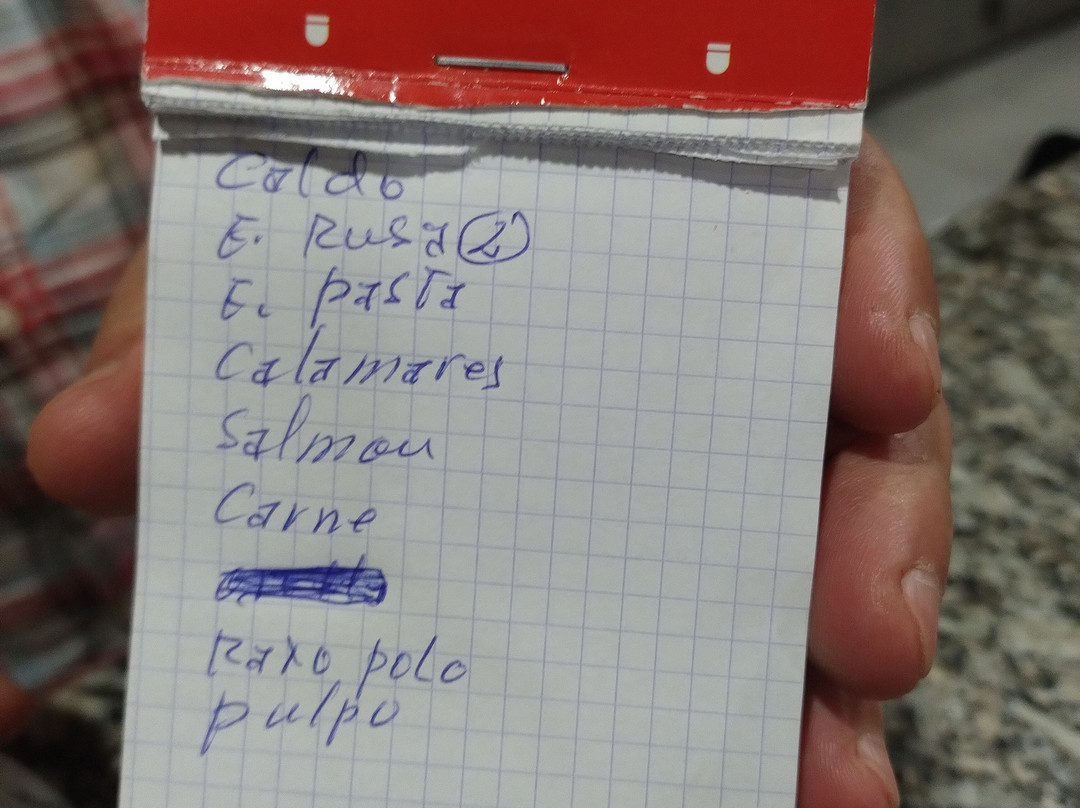 Caldo
E. Rusa 2
E. pasta
Calamares
Salmon
Carne
Raxo polo
pulpo